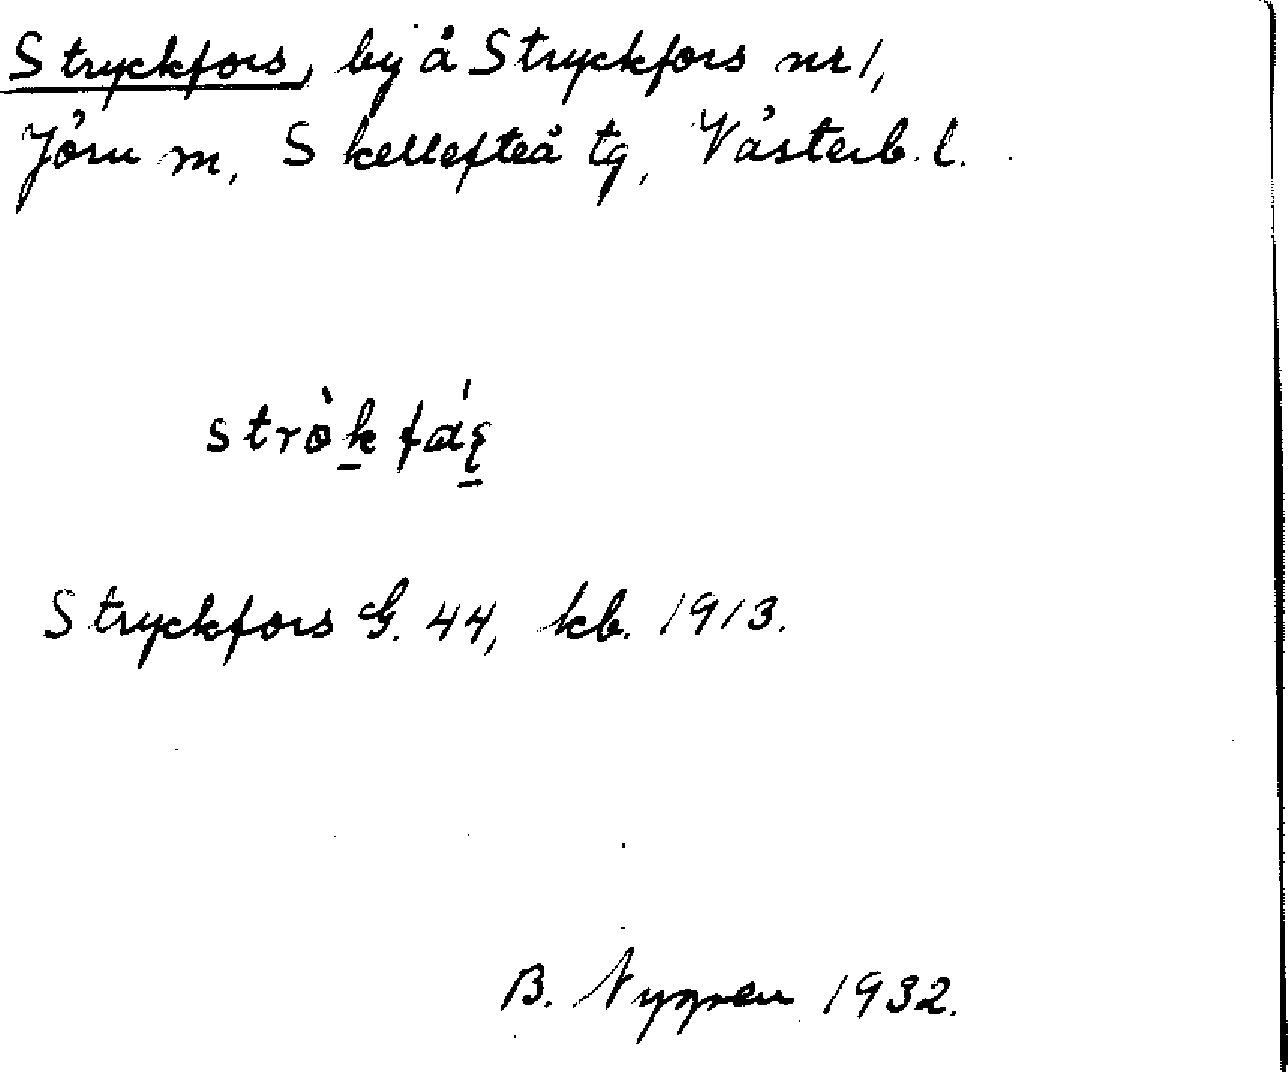 Stryckfors, by å Stryckfors nr 1,
Jörn m, Skellefteå tg, Västerb. l.
strò̱kfáʂ̱
Stryckfors G. 44, kb. 1913.
B. Nygren 1932.